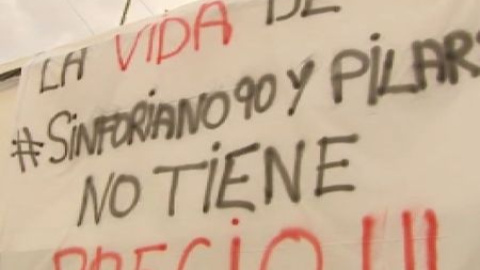 LA VIDA DE
#SINFORIANO90 Y PILAR
NO TIENE
PRECIO!!!